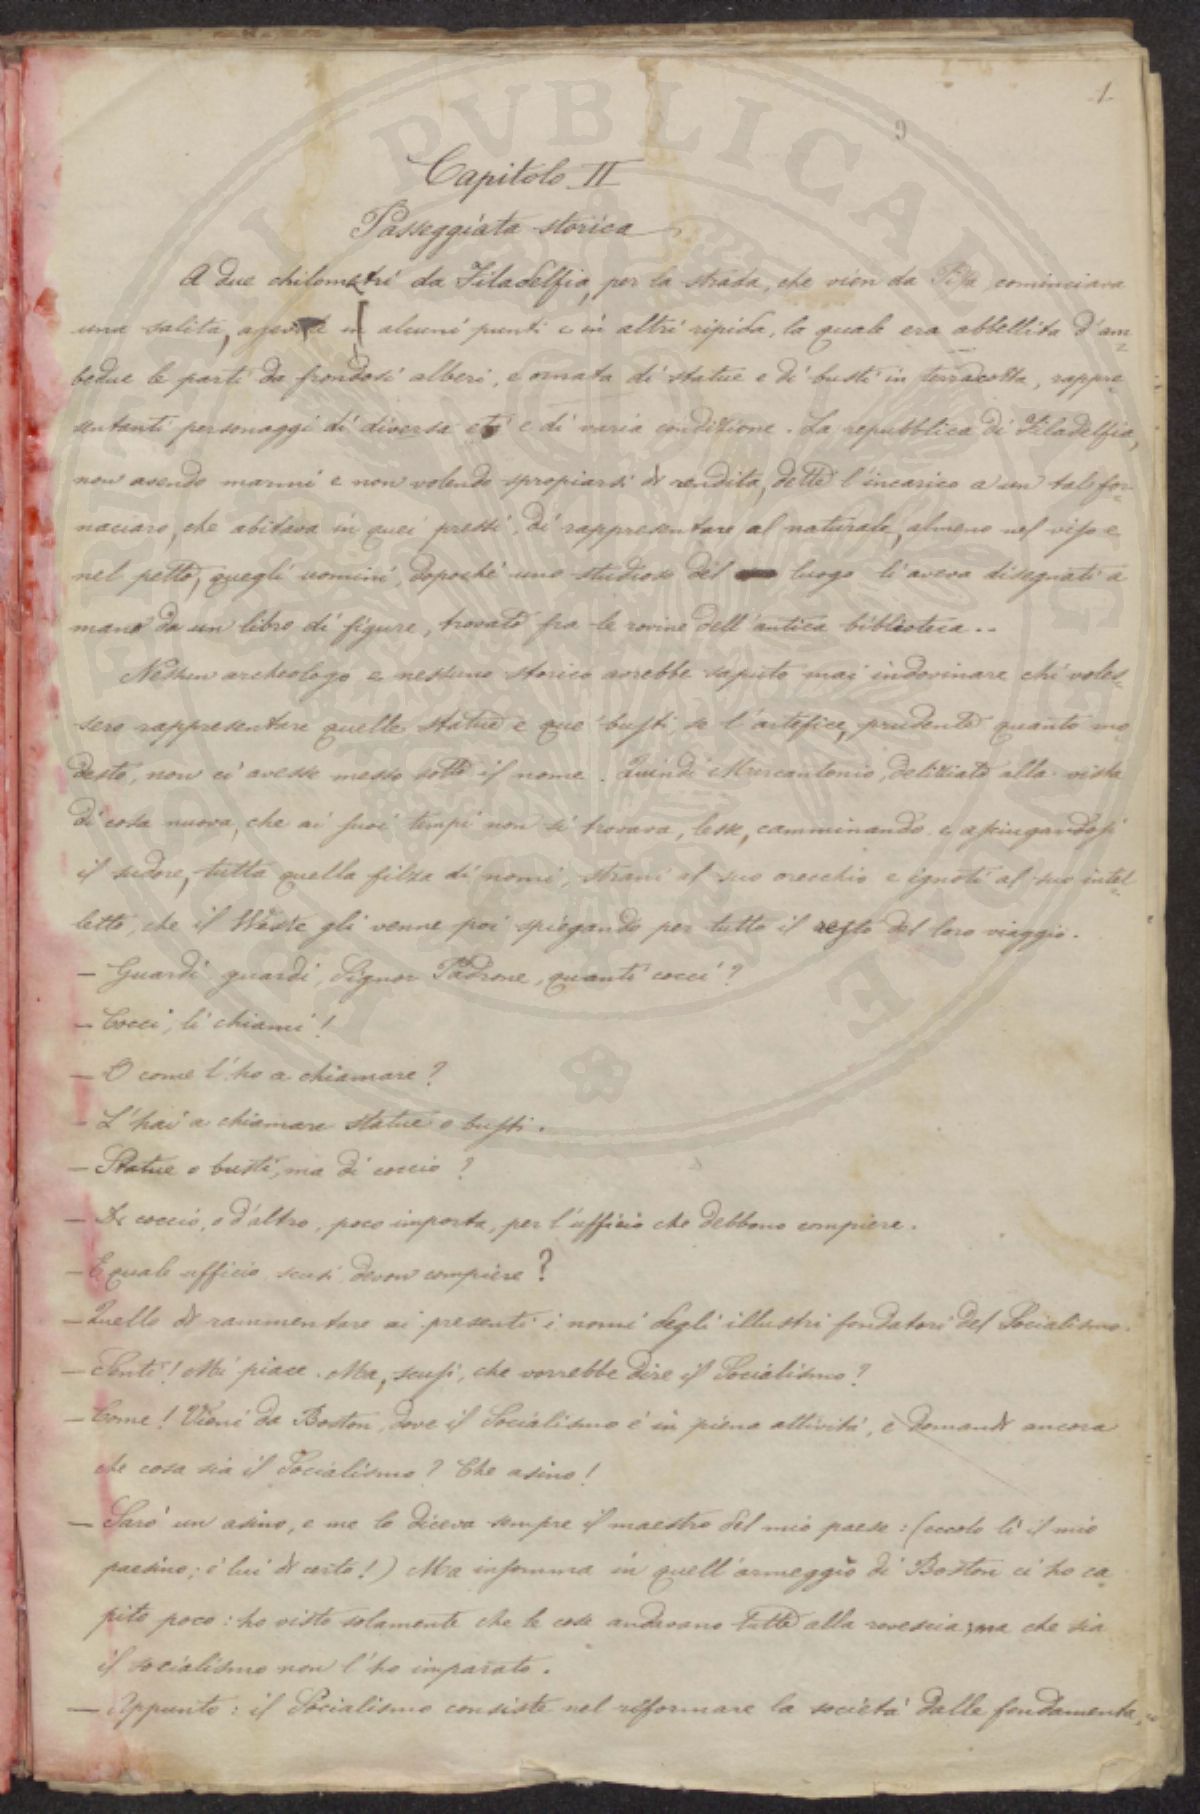 1
9
Capitolo II
Passeggiata storica
A due chilometri da Filadelfia, per la strada, che vien da Pisa, cominciava
una salita, in alcuni punti e in altri ripida, la quale era abbellita d'am=
bedue le parti da frondosi alberi, e ornata di statue e di busti in terracotta, rappre=
sentanti personaggi di diversa età e di varia condizione. La repubblica di Filadelfia,
non avendo marmi e non volendo spropiarsi di rendita, dette l'incarico a un tal for=
naciaro, che abitava in quei pressi, di rappresentare al naturale, almeno nel viso e
nel petto, quegli uomini, dopoché uno studioso del luogo li aveva disegnati a
mano da un libro di figure, trovato fra le rovine dell'antica biblioteca..
Nessun archeologo e nessuno storico avrebbe saputo mai indovinare chi voles=
sero rappresentare quelle statue e que' busti, se l'artefice, prudente quanto mo=
desto, non ci avesse messo sotto il nome. Quindi Marcantonio, deliziato alla vista
di cosa nuova, che ai suoi tempi non si trovava, lesse, camminando e asciugandosi
il sudore, tutta quella filza di nomi, strani al suo orecchio e ignoti al suo intel=
letto, che il Weste gli venne poi spiegando per tutto il resto del loro viaggio.
— Guardi, guardi, Signor Padrone, quanti cocci?
— Cocci, li chiami!
— O come l'ho a chiamare?
— L'hai a chiamare statue o busti.
— Statue o busti, ma di coccio?
— Di coccio, o d'altro, poco importa, per l'ufficio che debbono compiere.
— E quale ufficio, scusi, devon compiere?
— Quello di rammentare ai presenti i nomi degli illustri fondatori del Socialismo.
— Senti! Mi piace. Ma, scusi, che vorrebbe dire il Socialismo?
— Come! Vieni da Boston, dove il Socialismo è in piena attività, e domandi ancora
che cosa sia il Socialismo? Che asino!
— Sarò un asino, e me lo diceva sempre il maestro del mio paese: (eccolo lì il mio
paesino; è lui di certo!) Ma insomma in quell'armeggio di Boston ci ho ca=
pito poco: ho visto solamente che le cose andavano tutte alla rovescia; ma che sia
il socialismo non l'ho imparato.
— Appunto: il Socialismo consiste nel riformare la società dalle fondamenta,